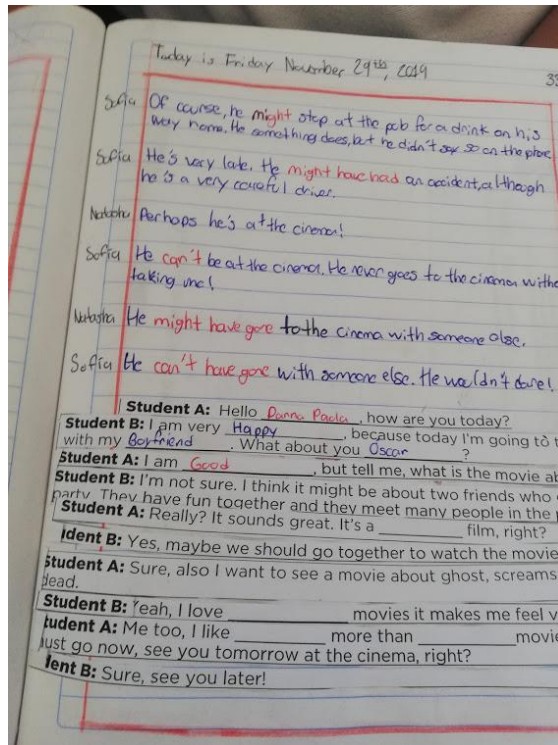 Today is Friday November 29ths, 2019
Sofia Of course, he might stop at the pcb for a drink on his
way home. He something does, but he didn't say so on the phone
Sofia He's very late. He might have had an accident, although
he is a very careful driver.
Natasha Perhaps he's at the cinema!
Sofia He can't be at the cinema. He never goes to the cinema witho
taking me!
Natasha He might have gone to the cinema with someone else.
Sofia He can't have gone with someone else. He wouldn't dare!
Student A: Hello Danna Paola, how are you today?
Student B: I am very Happy, because today I'm going to t
with my Boyfriend. What about you Oscar?
Student A: I am Good, but tell me, what is the movie ab
Student B: I'm not sure. I think it might be about two friends who
party. They have fun together and they meet many people in the
Student A: Really? It sounds great. It's a ________ film, right?
dent B: Yes, maybe we should go together to watch the movie
Student A: Sure, also I want to see a movie about ghost, screams
dead.
Student B: Yeah, I love ________ movies it makes me feel v
tudent A: Me too, I like ________ more than ________ movie
ust go now, see you tomorrow at the cinema, right?
dent B: Sure, see you later!